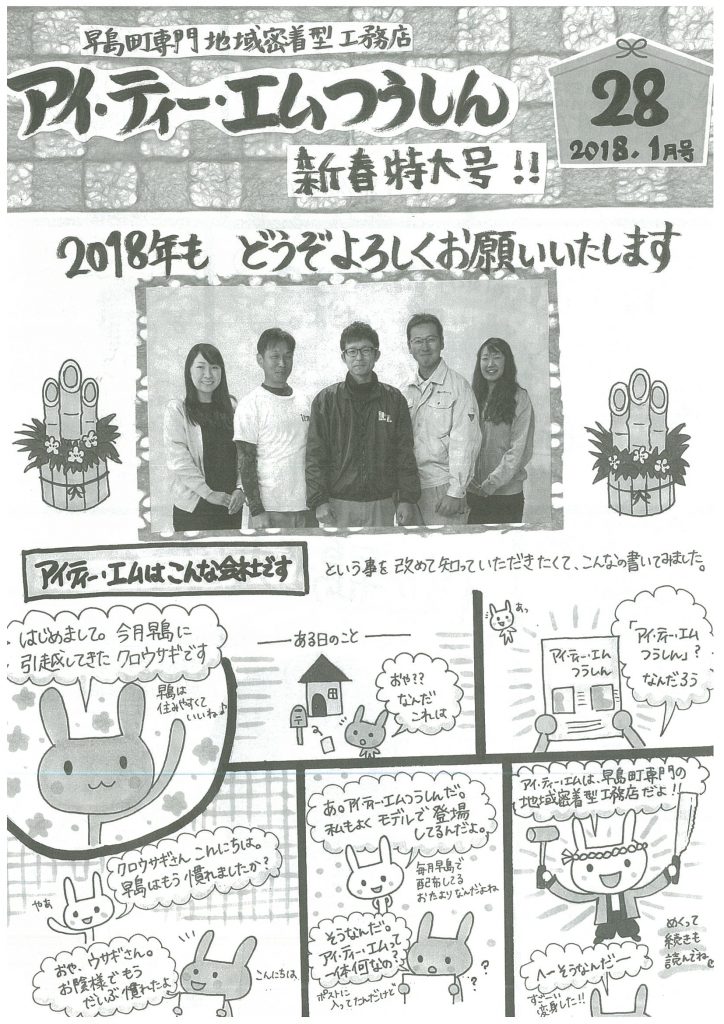 早島町専門 地域密着型 工務店
アイ・ティー・エムつうしん
新春特大号!!
28
2018.1月号
2018年も どうぞよろしくお願いいたします
アイ・ティー・エムはこんな会社です
という事を改めて知っていただきたくて、こんなの書いてみました。
はじめまして。今月早島に
引越してきた クロウサギです
早島は
住みやすくて
いいね♪
ある日のこと
おや??
なんだ
これは
あっ
アイ・ティー・エム
つうしん
「アイ・ティー・エム
つうしん」?
なんだろう
クロウサギさん こんにちは。
早島はもう 慣れましたか?
やあ
おや、ウサギさん。
お陰様でもう
だいぶ慣れたよ
こんにちは
あ。アイ・ティー・エムつうしんだ。
私もよく モデルで 登場
してるんだよ。
毎月早島で
配布してる
おたよりなんだよね
そうなんだ。
アイ・ティー・エムって
一体何なの?
ポストに
入ってたんだけど
???
アイ・ティー・エムは、早島町専門の
地域密着型工務店だよ!!
めくって
続きも
読んでね
へーそうなんだー
すごーい
変身した!!